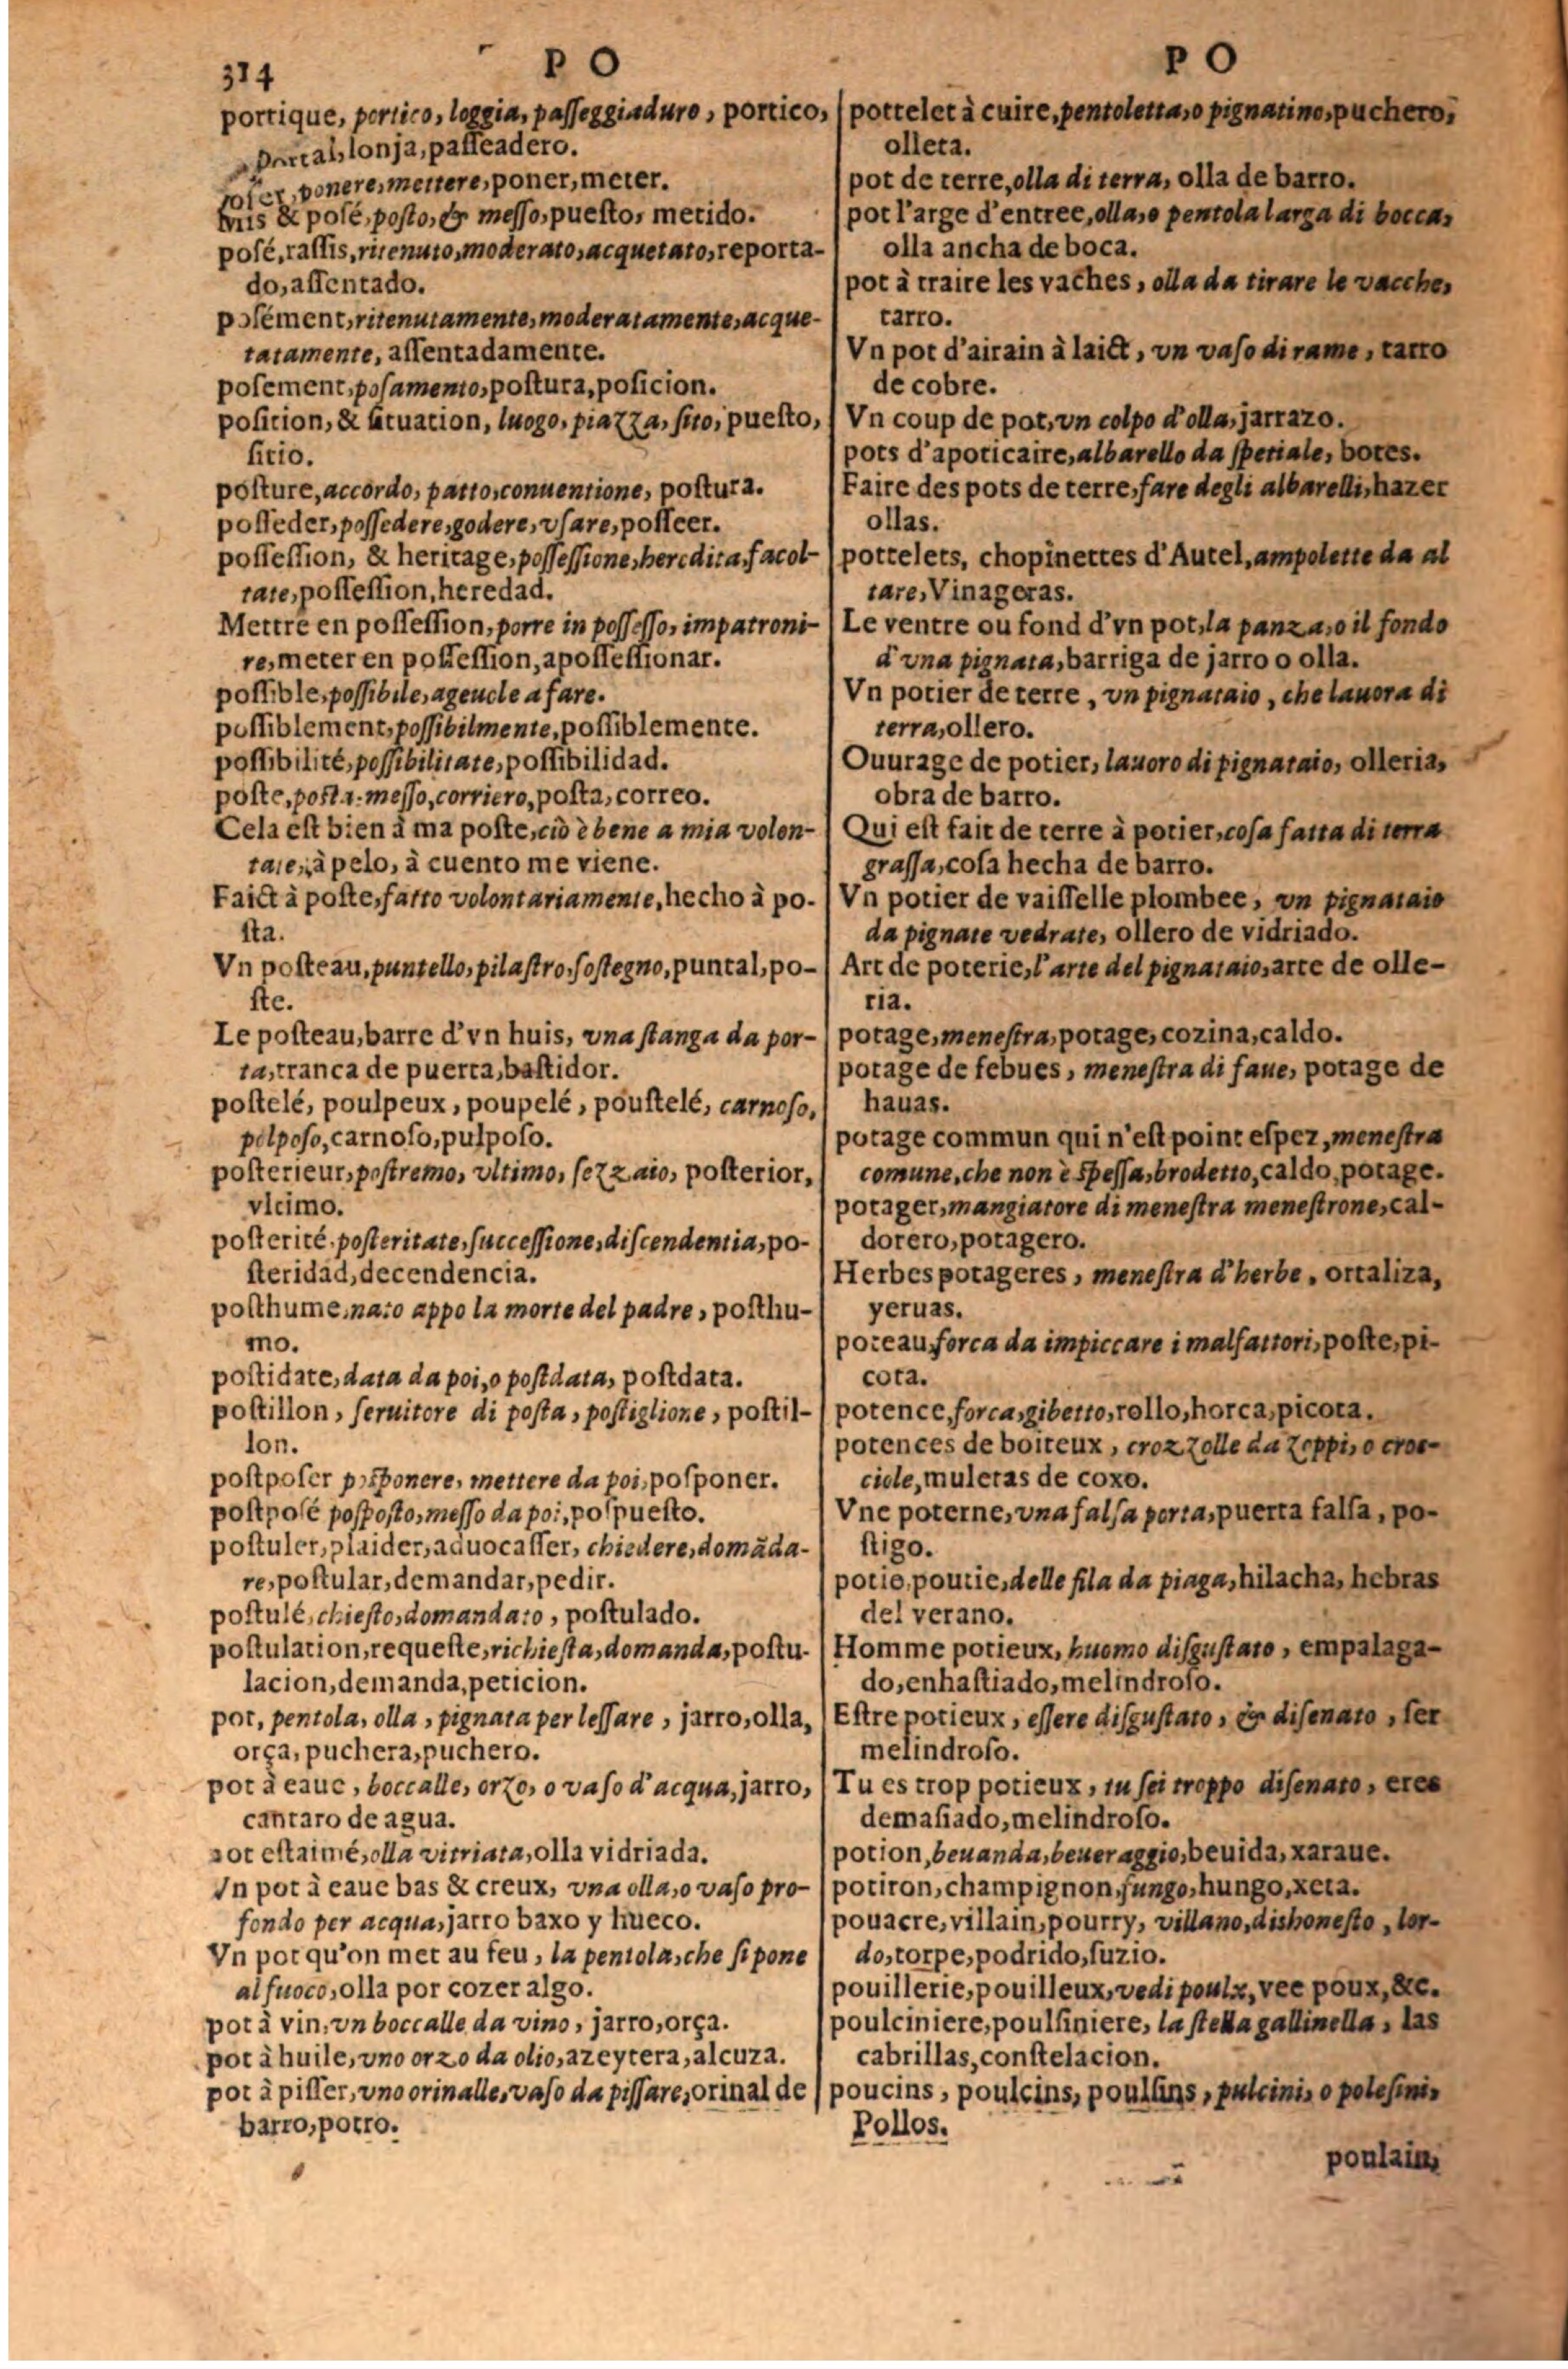 314
P O
portique, portico, loggia, passeggiaduro, portico,
portal, lonja, passeadero.
poser, ponere, mettere, poner, meter.
mis & posé, posto, & messo, puesto, metido.
posé, rassis, ritenuto, moderato, acquetato, reporta-
do, assentado.
posément, ritenutamente, moderatamente, acque-
tatamente, assentadamente.
posement, posamento, postura, posicion.
position, & situation, luogo, piazza, sito, puesto,
sitio.
posture, accordo, patto, conuentione, postura.
posseder, possedere, godere, vsare, posseer.
possession, & heritage, possessione, heredita, facol-
tate, possession, heredad.
Mettre en possession, porre in possesso, impatroni-
re, meter en possession, apossessionar.
possible, possibile, ageuole a fare.
possiblement, possibilmente, possiblemente.
possibilité, possibilitate, possibilidad.
poste, posta. messo, corriero, posta, correo.
Cela est bien à ma poste, ciò è bene a mia volon-
tate, à pelo, à cuento me viene.
Faict à poste, fatto volontariamente, hecho à po-
sta.
Vn posteau, puntello, pilastro, sostegno, puntal, po-
ste.
Le posteau, barre d'vn huis, vna stanga da por-
ta, tranca de puerta, bastidor.
postelé, poulpeux, poupelé, poustelé, carnoso,
polposo, carnoso, pulposo.
posterieur, postremo, vltimo, sezzaio, posterior,
vltimo.
posterité, posteritate, successione, discendentia, po-
steridad, decendencia.
posthume, nato appo la morte del padre, posthu-
mo.
postidate, data da poi, o postdata, postdata.
postillon, seruitore di posta, postiglione, postil-
lon.
postposer posponere, mettere da poi, posponer.
postposé posposto, messo da poi, pospuesto.
postuler, plaider, aduocasser, chiedere, domãda-
re, postular, demandar, pedir.
postulé, chiesto, domandato, postulado.
postulation, requeste, richiesta, domanda, postu-
lacion, demanda, peticion.
pot, pentola, olla, pignata per lessare, jarro, olla,
orça, puchera, puchero.
pot à eaue, boccalle, orzo, o vaso d'acqua, jarro,
cantaro de agua.
pot estaimé, olla vitriata, olla vidriada.
Vn pot à eaue bas & creux, vna olla, o vaso pro-
fondo per acqua, jarro baxo y hueco.
Vn pot qu'on met au feu, la pentola, che si pone
al fuoco, olla por cozer algo.
pot à vin, vn boccalle da vino, jarro, orça.
pot à huile, vno orzo da olio, azeytera, alcuza.
pot à pisser, vno orinalle, vaso da pissare, orinal de
barro, potro.
P O
pottelet à cuire, pentoletta, o pignatino, puchero,
olleta.
pot de terre, olla di terra, olla de barro.
pot l'arge d'entree, olla, o pentola larga di bocca,
olla ancha de boca.
pot à traire les vaches, olla da tirare le vacche,
tarro.
Vn pot d'airain à laict, vn vaso di rame, tarro
de cobre.
Vn coup de pot, vn colpo d'olla, jarrazo.
pots d'apoticaire, albarello da spetiale, botes.
Faire des pots de terre, fare degli albarelli, hazer
ollas.
pottelets, chopinettes d'Autel, ampolette da al
tare, Vinageras.
Le ventre ou fond d'vn pot, la panza, o il fondo
d'vna pignata, barriga de jarro o olla.
Vn potier de terre, vn pignataio, che lauora di
terra, ollero.
Ouurage de potier, lauoro di pignataio, olleria,
obra de barro.
Qui est fait de terre à potier, cosa fatta di terra
grassa, cosa hecha de barro.
Vn potier de vaisselle plombee, vn pignataio
da pignate vedrate, ollero de vidriado.
Art de poterie, l'arte del pignataio, arte de olle-
ria.
potage, menestra, potage, cozina, caldo.
potage de febues, menestra di faue, potage de
hauas.
potage commun qui n'est point espez, menestra
comune, che non è spessa, brodetto, caldo, potage.
potager, mangiatore di menestra menestrone, cal-
dorero, potagero.
Herbes potageres, menestra d'herbe, ortaliza,
yeruas.
poteau, forca da impiccare i malfattori, poste, pi-
cota.
potence, forca, gibetto, rollo, horca, picota.
potences de boiteux, crozzolle da zoppi, o croc-
ciole, muletas de coxo.
Vne poterne, vna falsa porta, puerta falsa, po-
stigo.
potie, poutie, delle fila da piaga, hilacha, hebras
del verano.
Homme potieux, huomo disgustato, empalaga-
do, enhastiado, melindroso.
Estre potieux, essere disgustato, & disenato, ser
melindroso.
Tu es trop potieux, tu sei troppo disenato, eres
demasiado, melindroso.
potion, beuanda, beueraggio, beuida, xaraue.
potiron, champignon, fungo, hungo, xeta.
pouacre, villain, pourry, villano, dishonesto, lor-
do, torpe, podrido, suzio.
pouillerie, pouilleux, vedi poulx, vee poux, &c.
poulciniere, poulsiniere, la stella gallinella, las
cabrillas, constelacion.
poucins, poulcins, poulsins, pulcini, o polesini,
Pollos.
poulain,